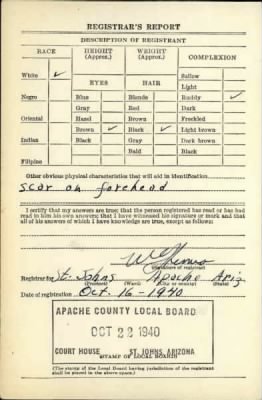 REGISTRAR'S REPORT
DESCRIPTION OF REGISTRANT
RACE HEIGHT (Approx.) WEIGHT (Approx.) COMPLEXION
White ✓ Sallow
EYES HAIR Light
Negro Blue Blonde Ruddy ✓
Gray Red Dark
Oriental Hazel Brown Freckled
Brown ✓ Black ✓ Light brown
Indian Black Gray Dark brown
Bald Black
Filipino
Other obvious physical characteristics that will aid in identification
scar on forehead
I certify that my answers are true; that the person registered has read or has had
read to him his own answers; that I have witnessed his signature or mark and that
all of his answers of which I have knowledge are true, except as follows:
(Signature of registrar)
Registrar for St. Johns Apache Ariz
(Precinct) (Ward) (City or county) (State)
Date of registration Oct. 16 - 1940
APACHE COUNTY LOCAL BOARD
OCT 22 1940
COURT HOUSE ST. JOHNS, ARIZONA
STAMP OF LOCAL BOARD
(The stamp of the Local Board having jurisdiction of the registrant
shall be placed in the above space.)